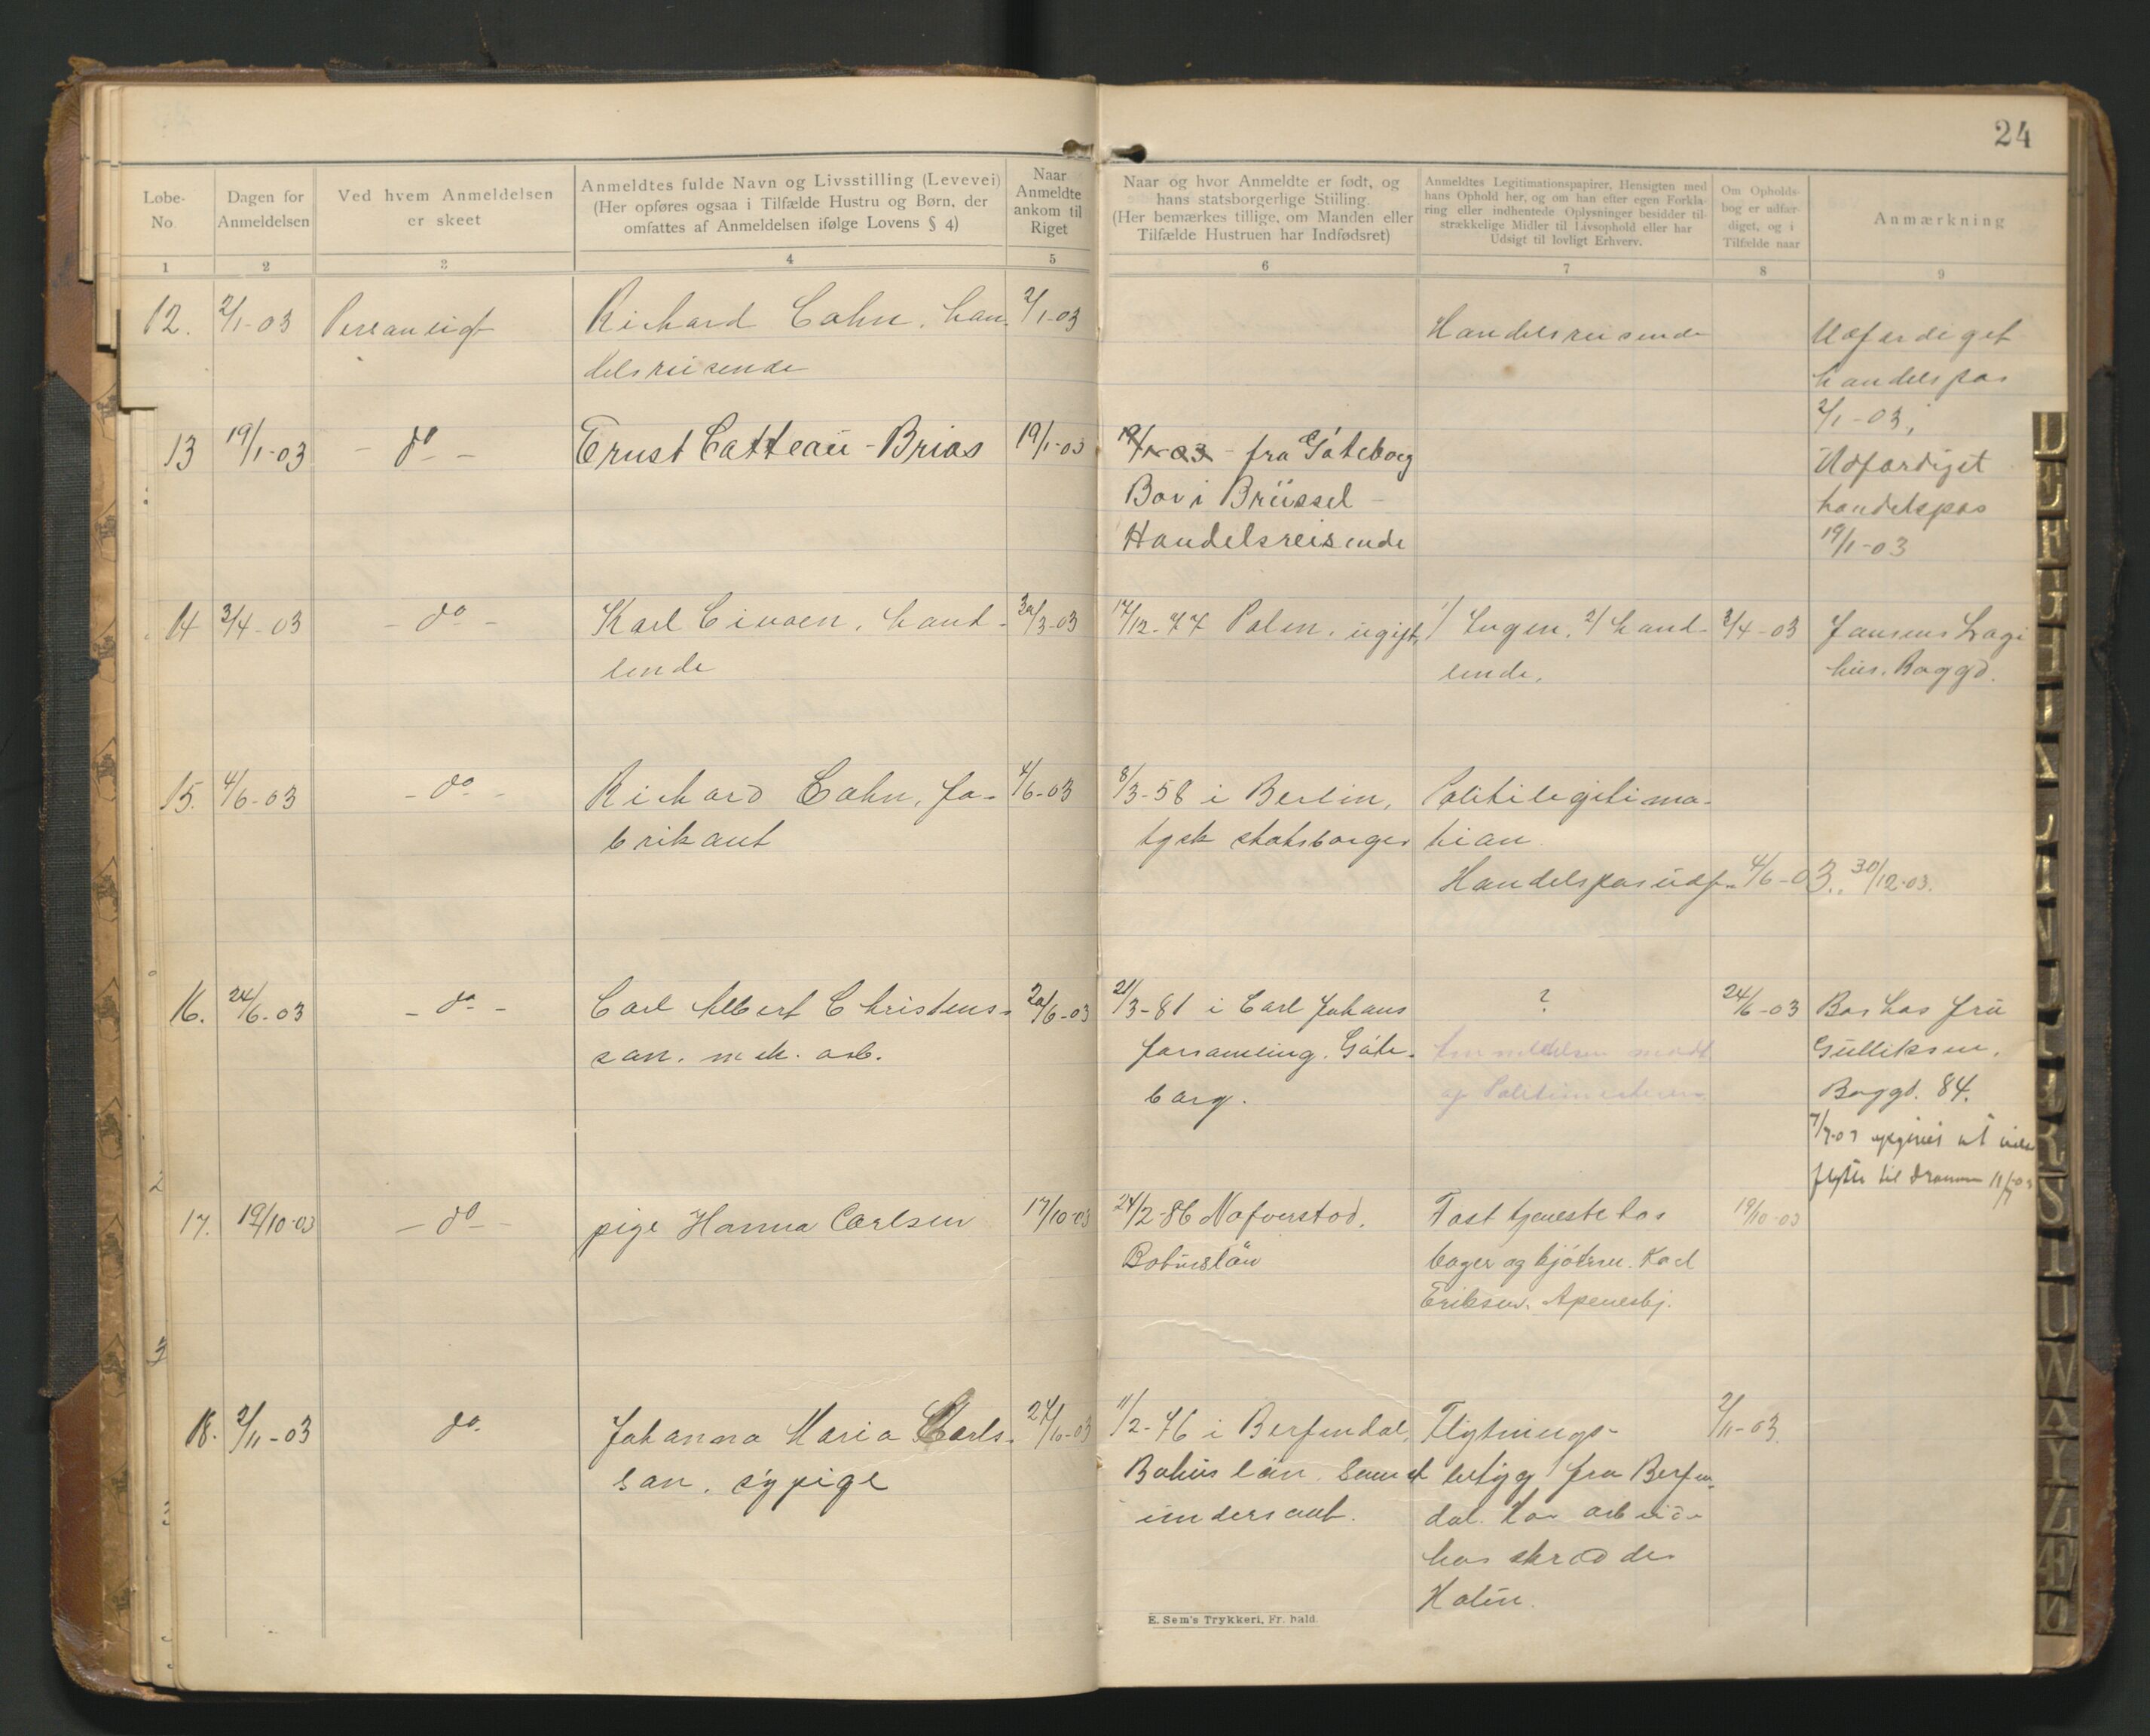 24
Løbe-
No.
Dagen for
Anmeldelsen
Ved hvem Anmeldelsen
er skeet
Anmeldtes fulde Navn og Livsstilling (Levevei)
(Her opføres ogsaa i Tilfælde Hustru og Børn, der
omfattes af Anmeldelsen ifølge Lovens § 4)
Naar
Anmeldte
ankom til
Riget
Naar og hvor Anmeldte er født, og
hans statsborgerlige Stiilling.
(Her bemærkes tillige, om Manden eller
Tilfælde Hustruen har Indfødsret)
Anmeldtes Legitimationspapirer, Hensigten med
hans Ophold her, og om han efter egen Forkla-
ring eller indhentede Oplysninger besidder til-
strækkelige Midler til Livsophold eller har
Udsigt til lovligt Erhverv.
Om Opholds-
bog er udfær-
diget, og i
Tilfælde naar
Anmærkning
1 2 3 4 5 6 7 8 9
12. 2/1-03 Personligt Richard Cohn, han- 2/1-03 Handelsreisende Udfærdiget
delsreisende handelspas
2/1-03,
13 19/1-03 - do - Ernst Catteau-Brias 19/1-03 19/1-03 - fra Göteborg Udfærdiget
Bor i Brüssel - handelspas
Handelsreisende 19/1-03
14 3/4-03 - do - Karl hand- 3/3-03 17/12-77 Polen, ugift, 1/ Ingen, 2/ hand- 3/4-03 Jansens Logi
lende lende. hus. Baggd.
15. 4/6-03 - do - Richard Cohn, fa- 4/6-03 8/3-58 i Berlin, Politilegitima-
brikant tysk statsborger tion.
Handelspas udf. 4/6-03., 30/12-03.
16. 24/6-03 - do - Carl Albert Christens- 20/6-03 21/3-81 i Carl Johans ? 24/6-03 Bor hos fru
son. mek. arb. forsamling. Göte- Anmeldelsen modt. Gulliksen,
borg. af Politimesteren Baggd. 84.
flytter til Drammen
17. 19/10-03 - do - pige Hanna Carlsen 17/10-03 24/2-86 Nafverstad, Fast tjeneste hos 19/10-03
Bohuslän bager og kjøbm. Karl
Eriksen, Apenesbj.
18. 2/11-03 do. Johanna Maria Carls- 24/10-03 11/2-76 i Berfendal, Flytnings- 2/11-03.
son, sypige Bohus län. Svensk betyg fra Berfen-
undersaat. dal. Har arbeide
hos skrædder
Holm.
E. Sem's Trykkeri, Fr.hald.